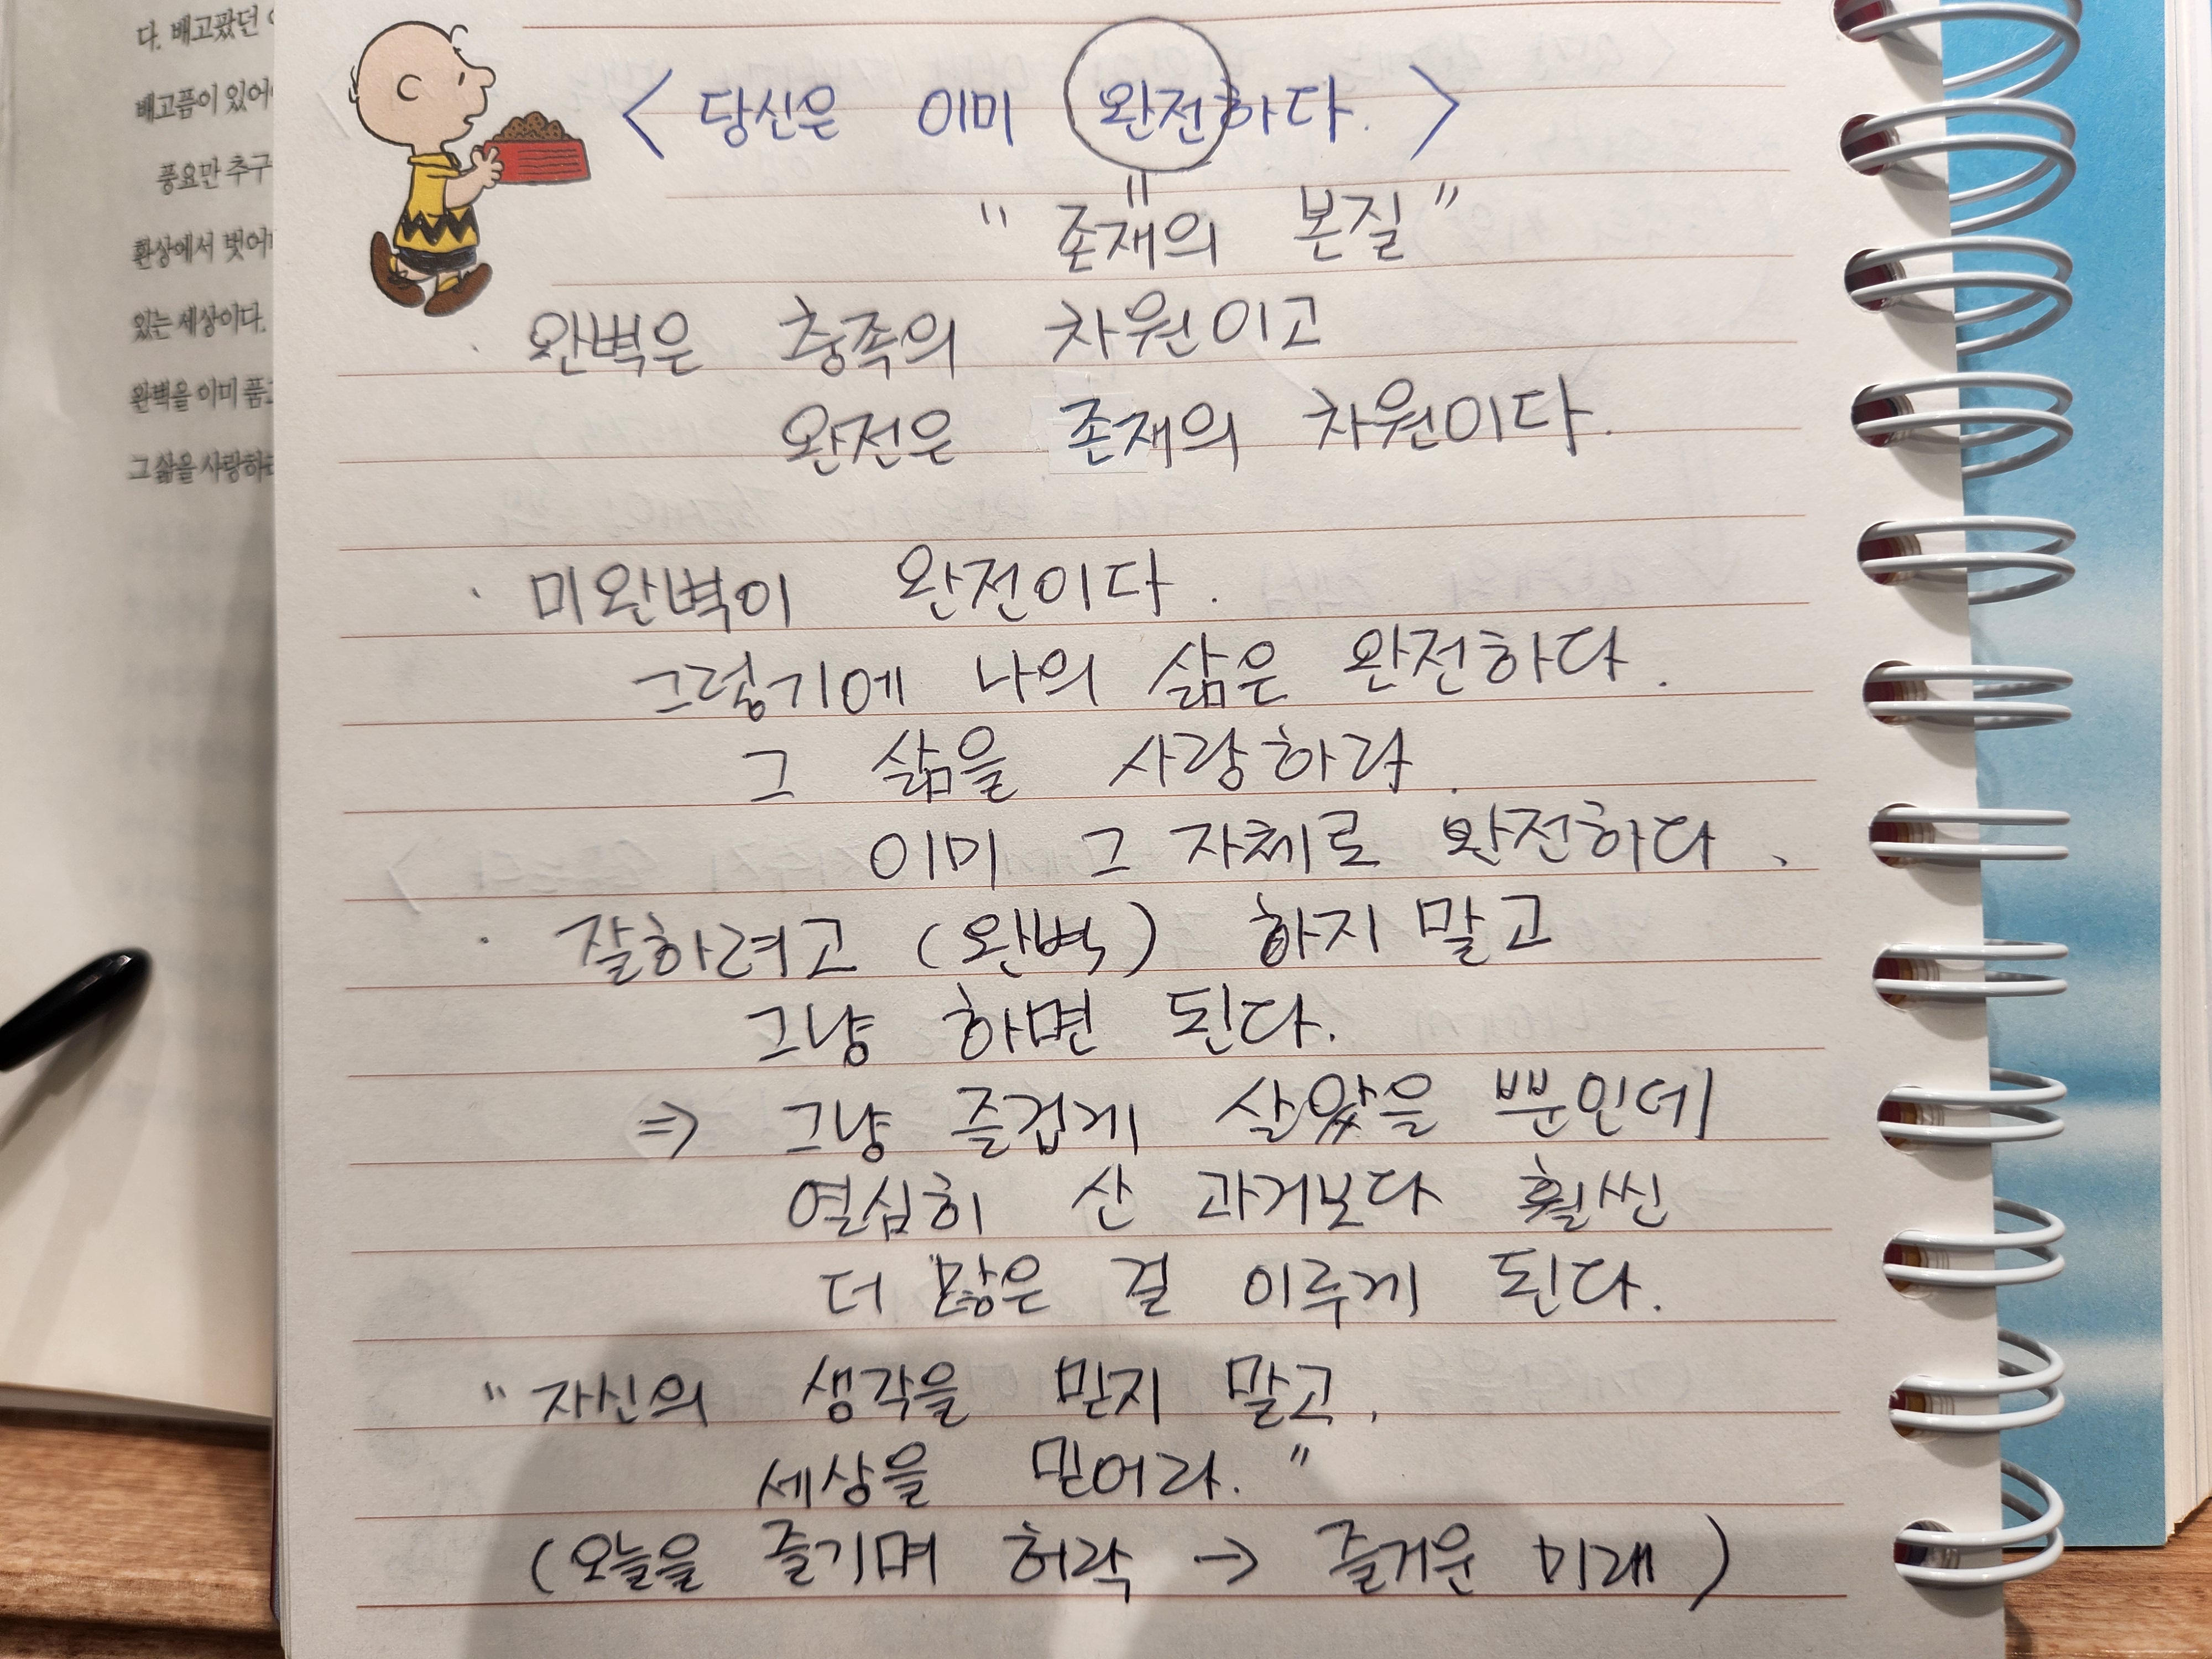 다. 배고팠던
배고픔이 있어
풍요만 추구
환상에서 벗어
있는 세상이다.
완벽을 이미 품
그 삶을 사랑하
< 당신은 이미 완전하다. >
=
"존재의 본질"
· 완벽은 충족의 차원이고
완전은 존재의 차원이다.
· 미완벽이 완전이다.
그렇기에 나의 삶은 완전하다.
그 삶을 사랑하라.
이미 그 자체로 완전하다.
· 잘하려고 (완벽) 하지 말고
그냥 하면 된다.
⇒ 그냥 즐겁게 살았을 뿐인데
열심히 산 과거보다 훨씬
더 많은 걸 이루게 된다.
"자신의 생각을 믿지 말고,
세상을 믿어라."
(오늘을 즐기며 허락 → 즐거운 미래)